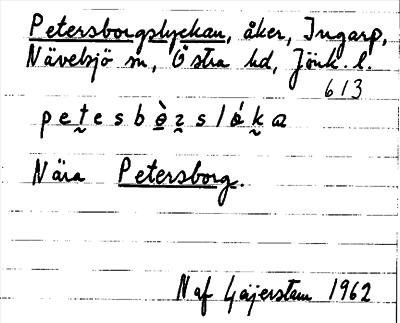 Petersborgslyckan, åker, Ingarp,
Nävelsjö sn, Östra hd, Jönk. l.
613
petesbòzslóka
Nära Petersborg.
N af Geijerstam 1962